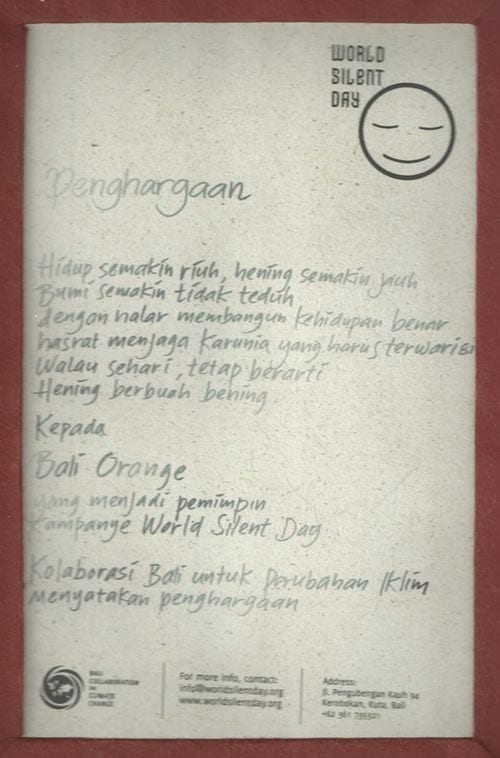 WORLD
SILENT
DAY
Penghargaan
Hidup semakin riuh, hening semakin jauh
Bumi semakin tidak teduh
dengan nalar membangun kehidupan benar
hasrat menjaga karunia yang harus terwarisi
Walau sehari, tetap berarti
Hening berbuah bening
Kepada
Bali Orange
yang menjadi pemimpin
Kampanye World Silent Day
Kolaborasi Bali untuk Perubahan Iklim
menyatakan penghargaan
BALI
COLLABORATION
ON
CLIMATE
CHANGE
For more info, contact:
info@worldsilentday.org
www.worldsilentday.org
Address:
Jl. Pengubengan Kauh 94
Kerobokan, Kuta, Bali
+62 361 735321